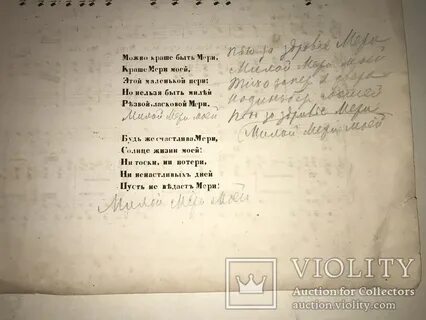 Можно краше быть Мери,
Краше Мери моей,
Этой маленькой пери:
Но нельзя быть милѣй
Рѣзвой ласковой Мери,
Милой Мери моей
Будь же счастлива Мери,
Солнце жизни моей:
Ни тоски, ни потери,
Ни ненастливыхъ дней
Пусть не вѣдаетъ Мери:
Милой Мери Моей
Пью за здравіе Мери
Милой Мери моей
Тихо заперъ я двери
Пью за здравіе Мери
Милой Мери моей
VIOLITY
Auction for Collectors
auction.violity.com